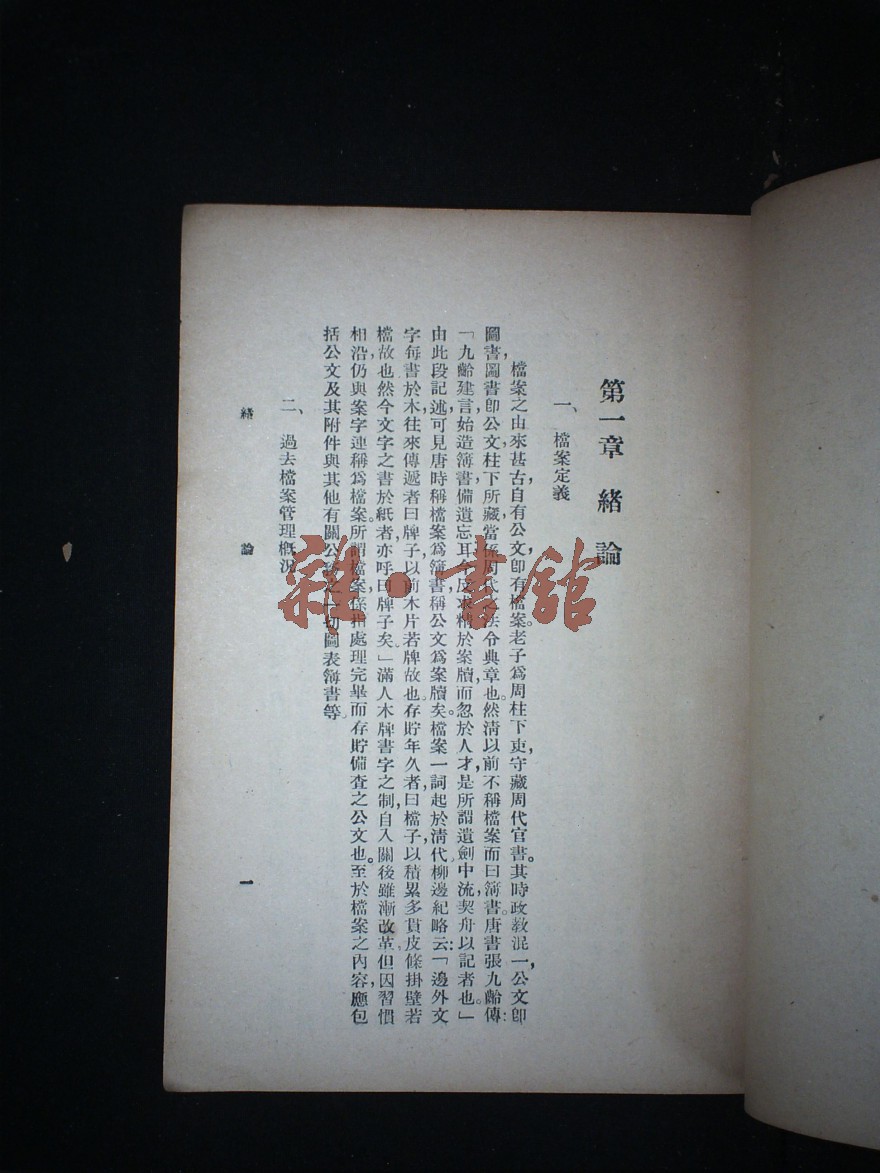 第一章 緒論
一、檔案定義
檔案之由來甚古，自有公文卽有檔案。老子爲周柱下吏，守藏周代官書。其時政敎混一，公文卽
圖書，圖書卽公文，柱下所藏，當係周代之法令典章也。然淸以前不稱檔案而曰簿書。唐書張九齡傳：
「九齡建言，始造簿書，備遺忘耳，今反求精於案牘，而忽於人才，是所謂遺劍中流，契舟以記者也。」
由此段記述，可見唐時稱檔案爲簿書，稱公文爲案牘矣。檔案一詞，起於淸代，柳邊紀略云：「邊外文
字，每書於木，往來傳遞者曰牌子，以前木片若牌故也。存貯年久者曰檔子，以積累多，貫皮條掛壁若
檔故也。然今文字之書於紙者，亦呼曰牌子矣。」滿人木牌書字之制，自入關後雖漸改革，但因習慣
相沿，仍與案字連稱爲檔案。所謂檔案，係指處理完畢而存貯備查之公文也。至於檔案之內容，應包
括公文及其附件與其他有關公之一切圖表簿書等。
二、過去檔案管理槪況
緒 論 一
雜·書館